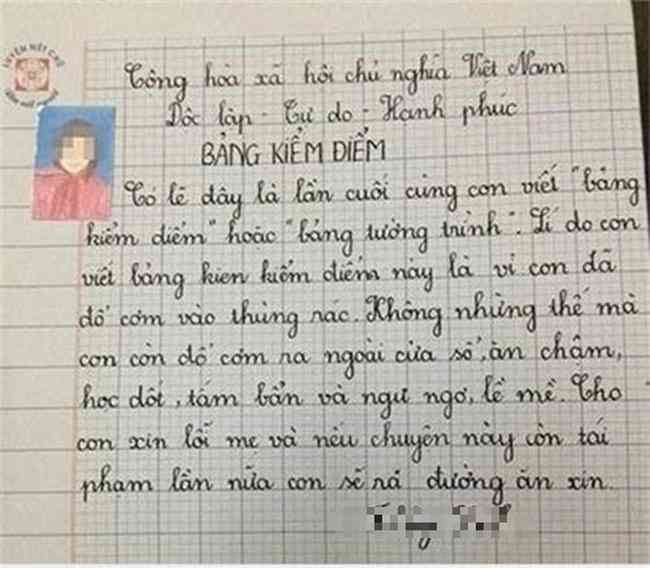 LUYỆN NÉT CHỮ
Cộng hòa xã hôi chủ nghĩa Việt Nam
Dôc lâp - Tư do - Hạnh phúc
BẢNG KIỂM ĐIỂM
Có lẽ dây là lần cuối cùng con viết "bảng
kiểm diểm" hoặc "bảng tường trình". Lí do con
viết bảng kien kiểm diểm này là vì con đã
đổ cơm vào thùng rác. Không những thế mà
con còn đổ cơm ra ngoài cửa sổ, ăn châm,
học dốt, tắm bẩn và ngu ngơ, lề mề. Cho
con xin lỗi mẹ và nếu chuyện này còn tái
phạm lần nữa con sẽ ra đường ăn xin.